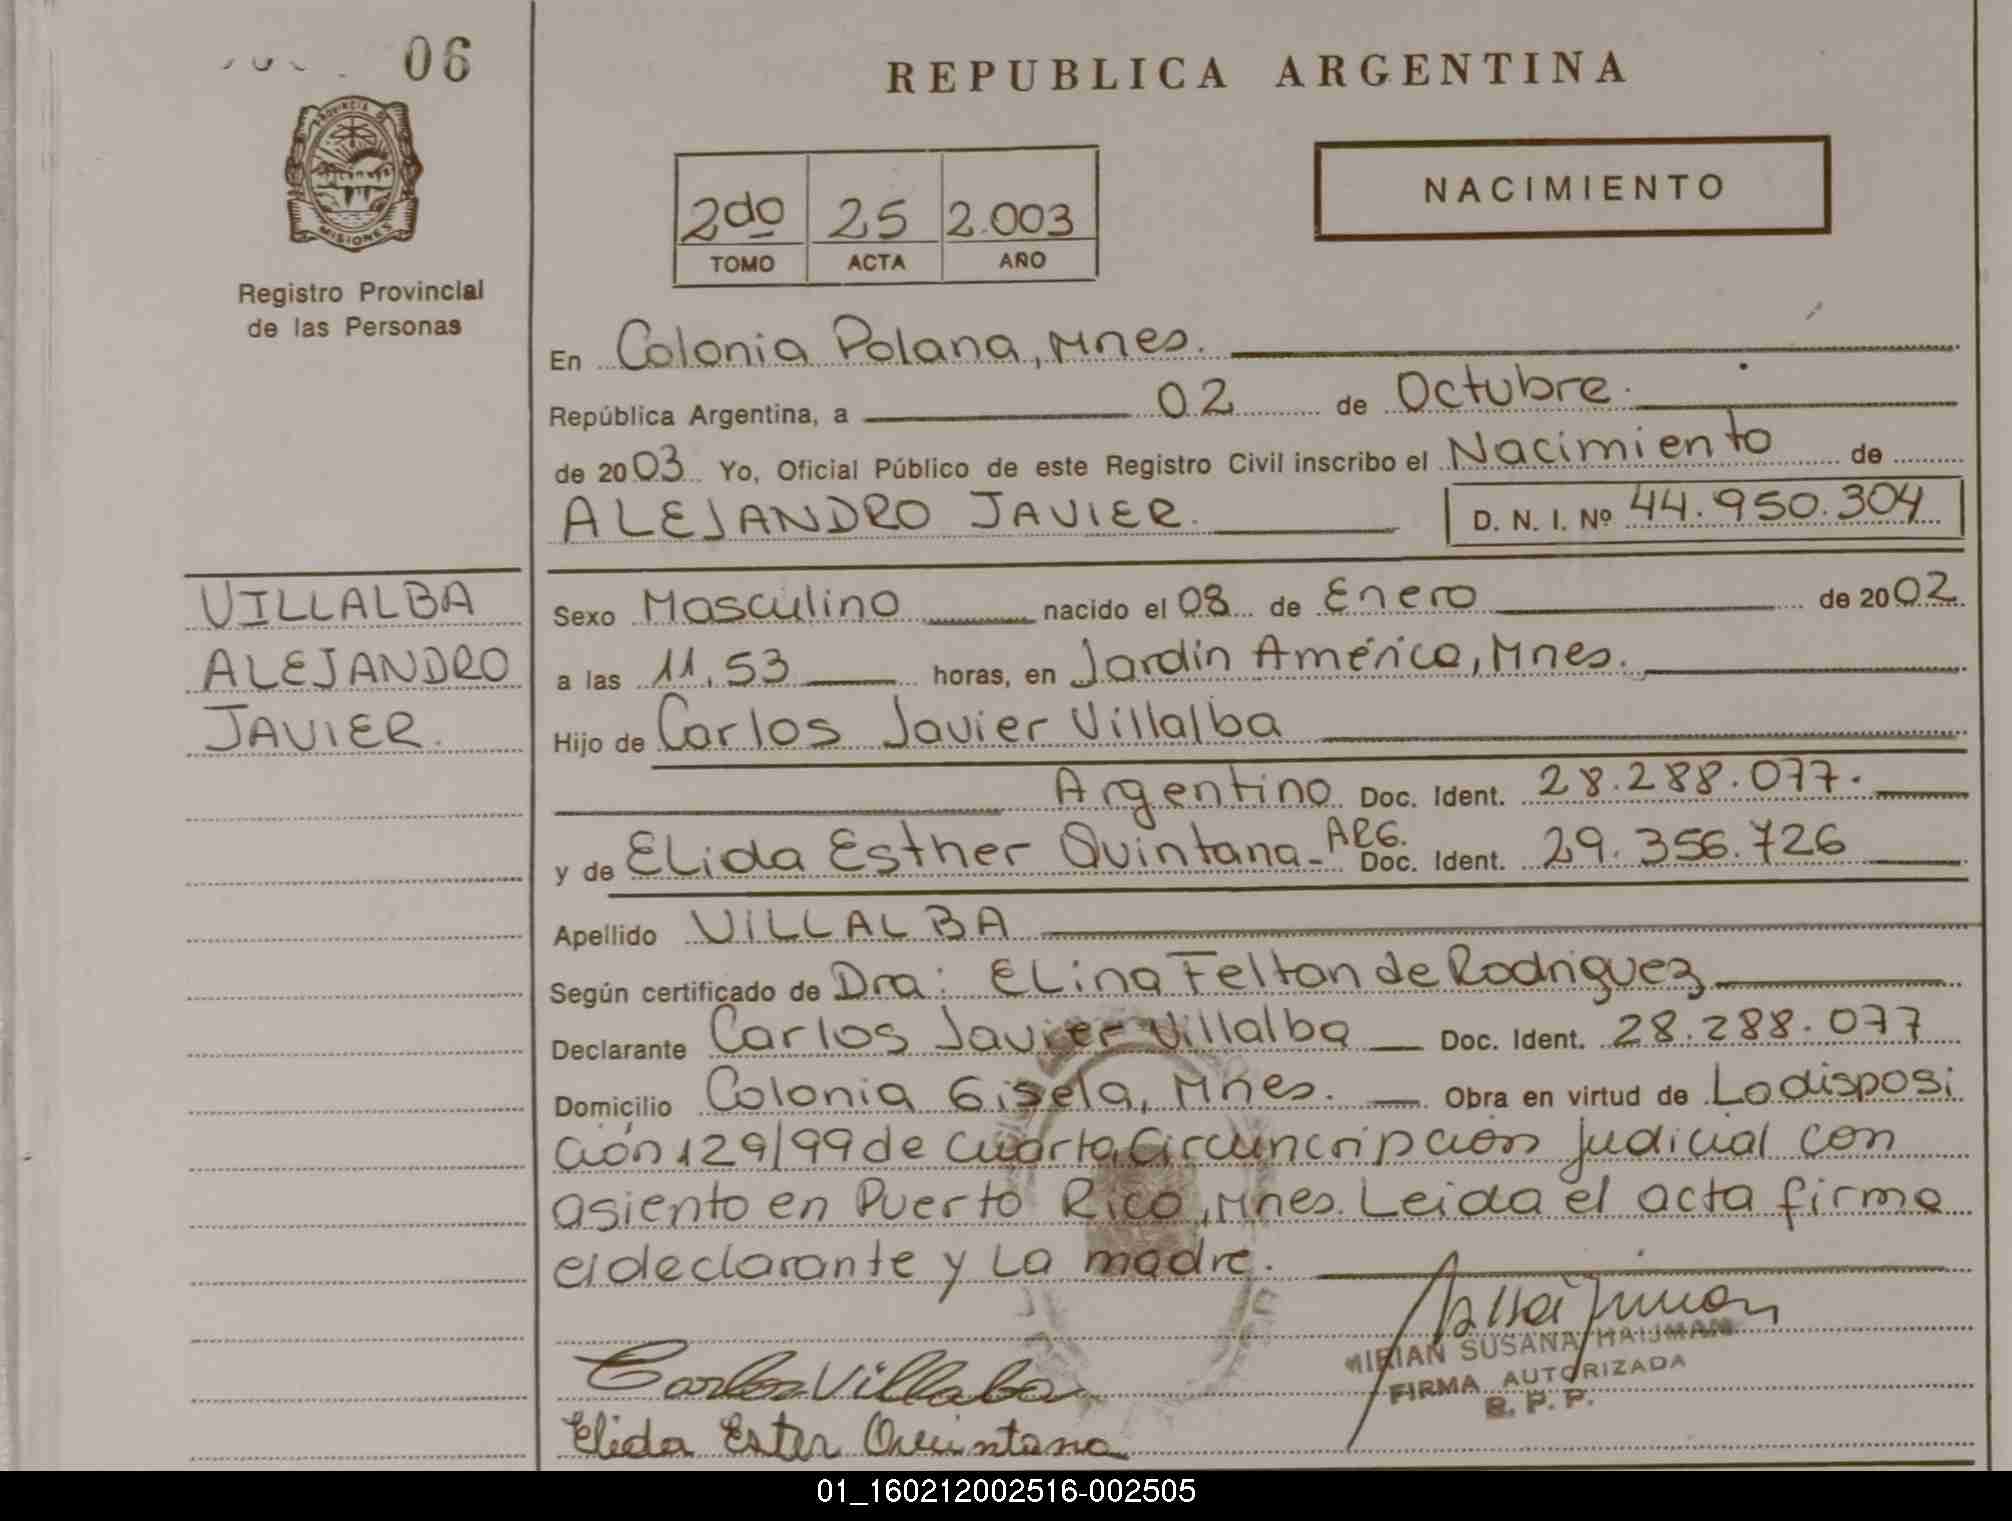 06
REPUBLICA ARGENTINA
PROVINCIA DE
MISIONES
Registro Provincial
de las Personas
2do 25 2.003
TOMO ACTA AÑO
NACIMIENTO
En Colonia Polana, Mnes.
República Argentina, a 02 de Octubre.
de 2003 Yo, Oficial Público de este Registro Civil inscribo el Nacimiento de
ALEJANDRO JAVIER. D. N. I. Nº 44.950.304
VILLALBA
ALEJANDRO
JAVIER.
Sexo Masculino nacido el 08 de Enero de 2002
a las 11,53 horas, en Jardín América, Mnes.
Hijo de Carlos Javier Villalba
Argentino Doc. Ident. 28.288.077.
y de Elida Esther Quintana - ARG. Doc. Ident. 29.356.726
Apellido VILLALBA
Según certificado de Dra: Elina Felton de Rodriguez
Declarante Carlos Javier Villalba Doc. Ident. 28.288.077
Domicilio Colonia Gisela, Mnes. Obra en virtud de La disposi
ción 129/99 de Cuarta Circuncripción judicial con
asiento en Puerto Rico, Mnes. Leida el acta firma
el declarante y La madre.
MIRIAN SUSANA HAIJMAN
FIRMA AUTORIZADA
R. P. P.
Carlos Villalba
Elida Ester Quintana
01_160212002516-002505